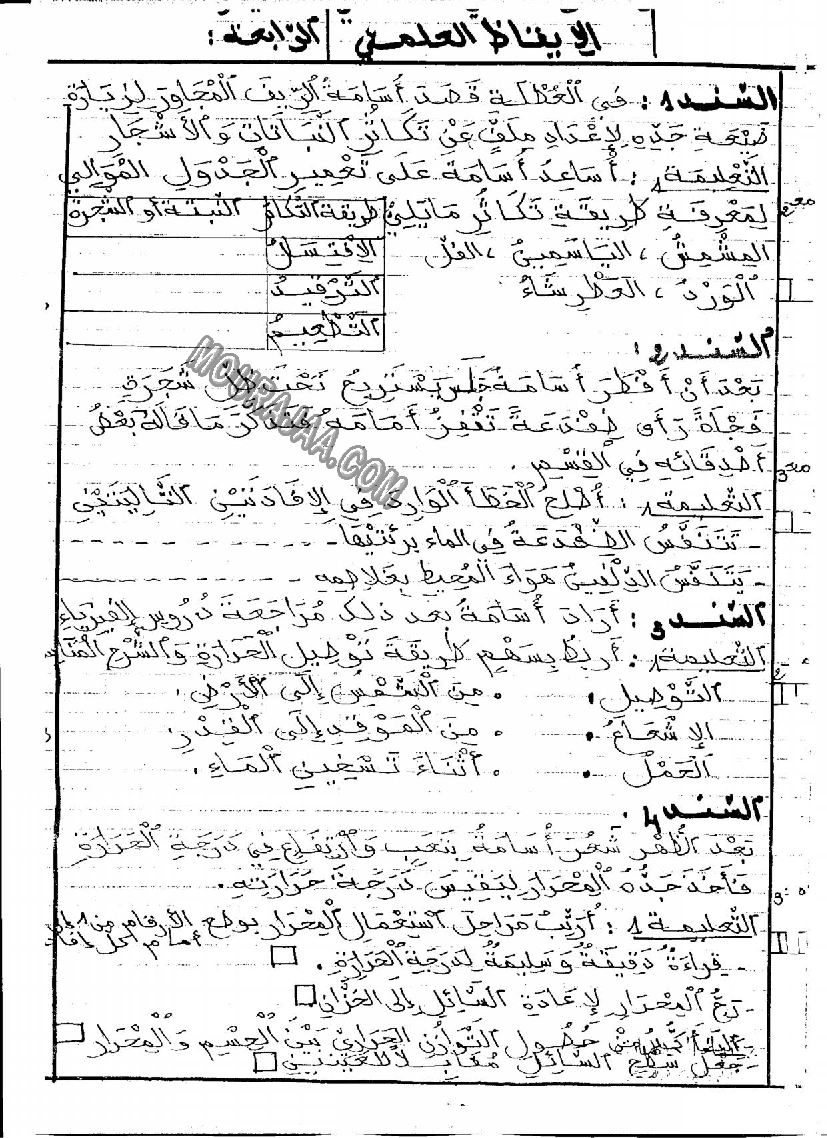 الإيقاظ العلمي الرّابعة :
السّند 1 : فِي الْعُطْلَةِ قَصَدَ أُسَامَةُ الرِّيفَ الْمُجَاوِرَ لِزِيَارَةِ
ضَيْعَةِ جَدِّهِ لِإِعْدَادِ مِلَفٍّ عَنْ تَكَاثُرِ النَّبَاتَاتِ وَالْأَشْجَارِ
التَّعْلِيمَة 1 : أُسَاعِدُ أُسَامَةَ عَلَى تَعْمِيرِ الْجَدْوَلِ الْمُوَالِي
لِمَعْرِفَةِ طَرِيقَةِ تَكَاثُرِ مَا يَلِي
المِشْمِشُ ، اليَاسَمِينُ ، الفُلّ
الْوَرْدُ ، العطْرشَاءُ
طريقة التّكاثر النّبتة أو الشّجرة
الاِفْتِسَالُ
التَّرْقِيدُ
التَّطْعِيمُ
السّند 2 :
بَعْدَ أَنْ أَفْطَرَ أُسَامَةُ جَلَسَ يَسْتَرِيحُ تَحْتَ ظِلِّ شَجَرَةٍ
فَجْأَةً رَأَى ضِفْدَعَةً تَقْفِزُ أَمَامَهُ فَتَذَكَّرَ مَا قَالَهُ بَعْضُ
أَصْدِقَائِهِ فِي القِسْمِ .
التعليمة 1 : أُصْلِحُ الْخَطَأَ الْوَارِدَ فِي الإِفَادَتَيْنِ التَّالِيَتَيْنِ
- تَتَنَفَّسُ الضِّفْدَعَةُ فِي الماء بِرِئَتَيْهَا
- يَتَنَفَّسُ الدُّلْفِينُ هَوَاءَ الْمُحِيطِ بِغَلَاصِمِهِ
السّند 3 : أَرَادَ أُسَامَةُ بعد ذلك مُرَاجَعَةَ دُرُوسِ الفيزياء
التَّعْلِيمَة 1 : أَرْبِطُ بِسَهْمٍ طَرِيقَةَ تَوْصِيلِ الْحَرَارَةِ وَالشَّرْحِ
التَّوْصِيلُ . . مِنَ الشَّمْسِ إِلَى الْأَرْضِ .
الإِشْعَاعُ . . مِنَ الْمَوْقِدِ إِلَى الْقِدْرِ .
الْحَمْلُ . . أَثْنَاءَ تَسْخِينِ الْمَاءِ .
السّند 4 .
بَعْدَ الظُّهْرِ شَعُرَ أُسَامَةُ بِتَعَبٍ وَارْتِفَاعٍ فِي دَرَجَةِ الْحَرَارَةِ
فَأَخَذَ جَدُّهُ الْمِحْرَارَ لِيَقِيسَ دَرَجَةَ حَرَارَتِهِ .
التَّعْلِيمَة 1 : أُرَتِّبُ مَرَاحِلَ اسْتِعْمَالِ الْمِحْرَارِ بوضع الأرقام من 1 إلى
أمام كل
- قِرَاءَةٌ دَقِيقَةٌ وَسَلِيمَةٌ لِدَرَجَةِ الْحَرَارَةِ .
- رَجُّ الْمِحْرَارِ لِإِعَادَةِ السَّائِلِ إِلَى الخَزَّانِ
- التَّأَكُّدُ مِنْ حُصُولِ التَّوَازُنِ الحَرَارِيِّ بَيْنَ الْجِسْمِ وَالْمِحْرَارِ
- جَعْلُ سَطْحِ السَّائِلِ مُقَابِلًا لِلْعَيْنَيْنِ
MOURAJAA.COM